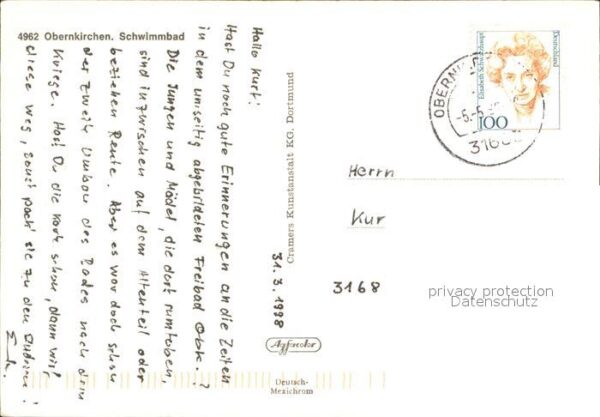 4962 Obernkirchen. Schwimmbad
Hallo Kurt!
Hast Du noch gute Erinnerungen an die Zeiten
in dem umseitig abgebildeten Freibad Obk. ?
Die Jungen und Mädel, die dort rumtoben,
sind inzwischen auf dem Altenteil oder
beziehen Rente. Aber es war doch schon
der zweite Umbau des Bades nach dem
Kriege. Hast Du die Karte schon, dann wirf
diese weg, sonst pack sie zu den anderen!
31.3.1998
Cramers Kunstanstalt KG. Dortmund
Agfacolor
Deutsch-
Mexichrom
Deutschland
Elisabeth Schwarzhaupt
100
OBERNK
3168
Herrn
Kur
3168
privacy protection
Datenschutz